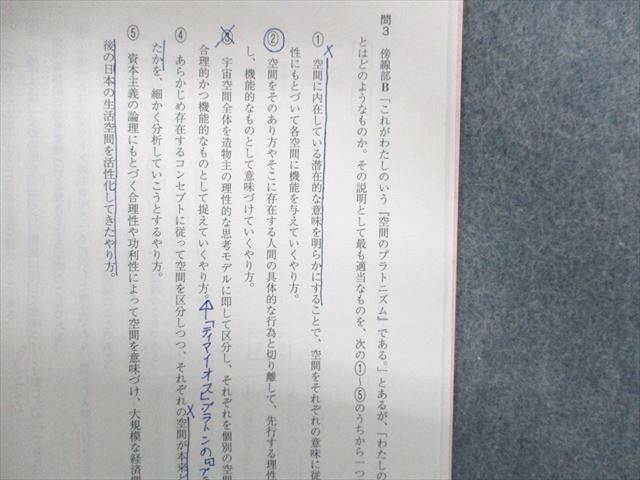 問3 傍線部B「これがわたしのいう『空間のプラトニズム』である。」とあるが、「わたしの
とはどのようなものか。その説明として最も適当なものを、次の①〜⑤のうちから一つ
① 空間に内在している潜在的な意味を明らかにすることで、空間をそれぞれの意味に従
性にもとづいて各空間に機能を与えていくやり方。
② 空間をそのあり方やそこに存在する人間の具体的な行為と切り離して、先行する理性
し、機能的なものとして意味づけていくやり方。
③ 宇宙空間全体を造物主の理性的な思考モデルに即して区分し、それぞれを個別の空間
合理的かつ機能的なものとして捉えていくやり方。
「ティマイオス」プラトンの
④ あらかじめ存在するコンセプトに従って空間を区分しつつ、それぞれの空間が本来と
たかを、細かく分析していこうとするやり方。
⑤ 資本主義の論理にもとづく合理性や功利性によって空間を意味づけ、大規模な経済
後の日本の生活空間を活性化してきたやり方。